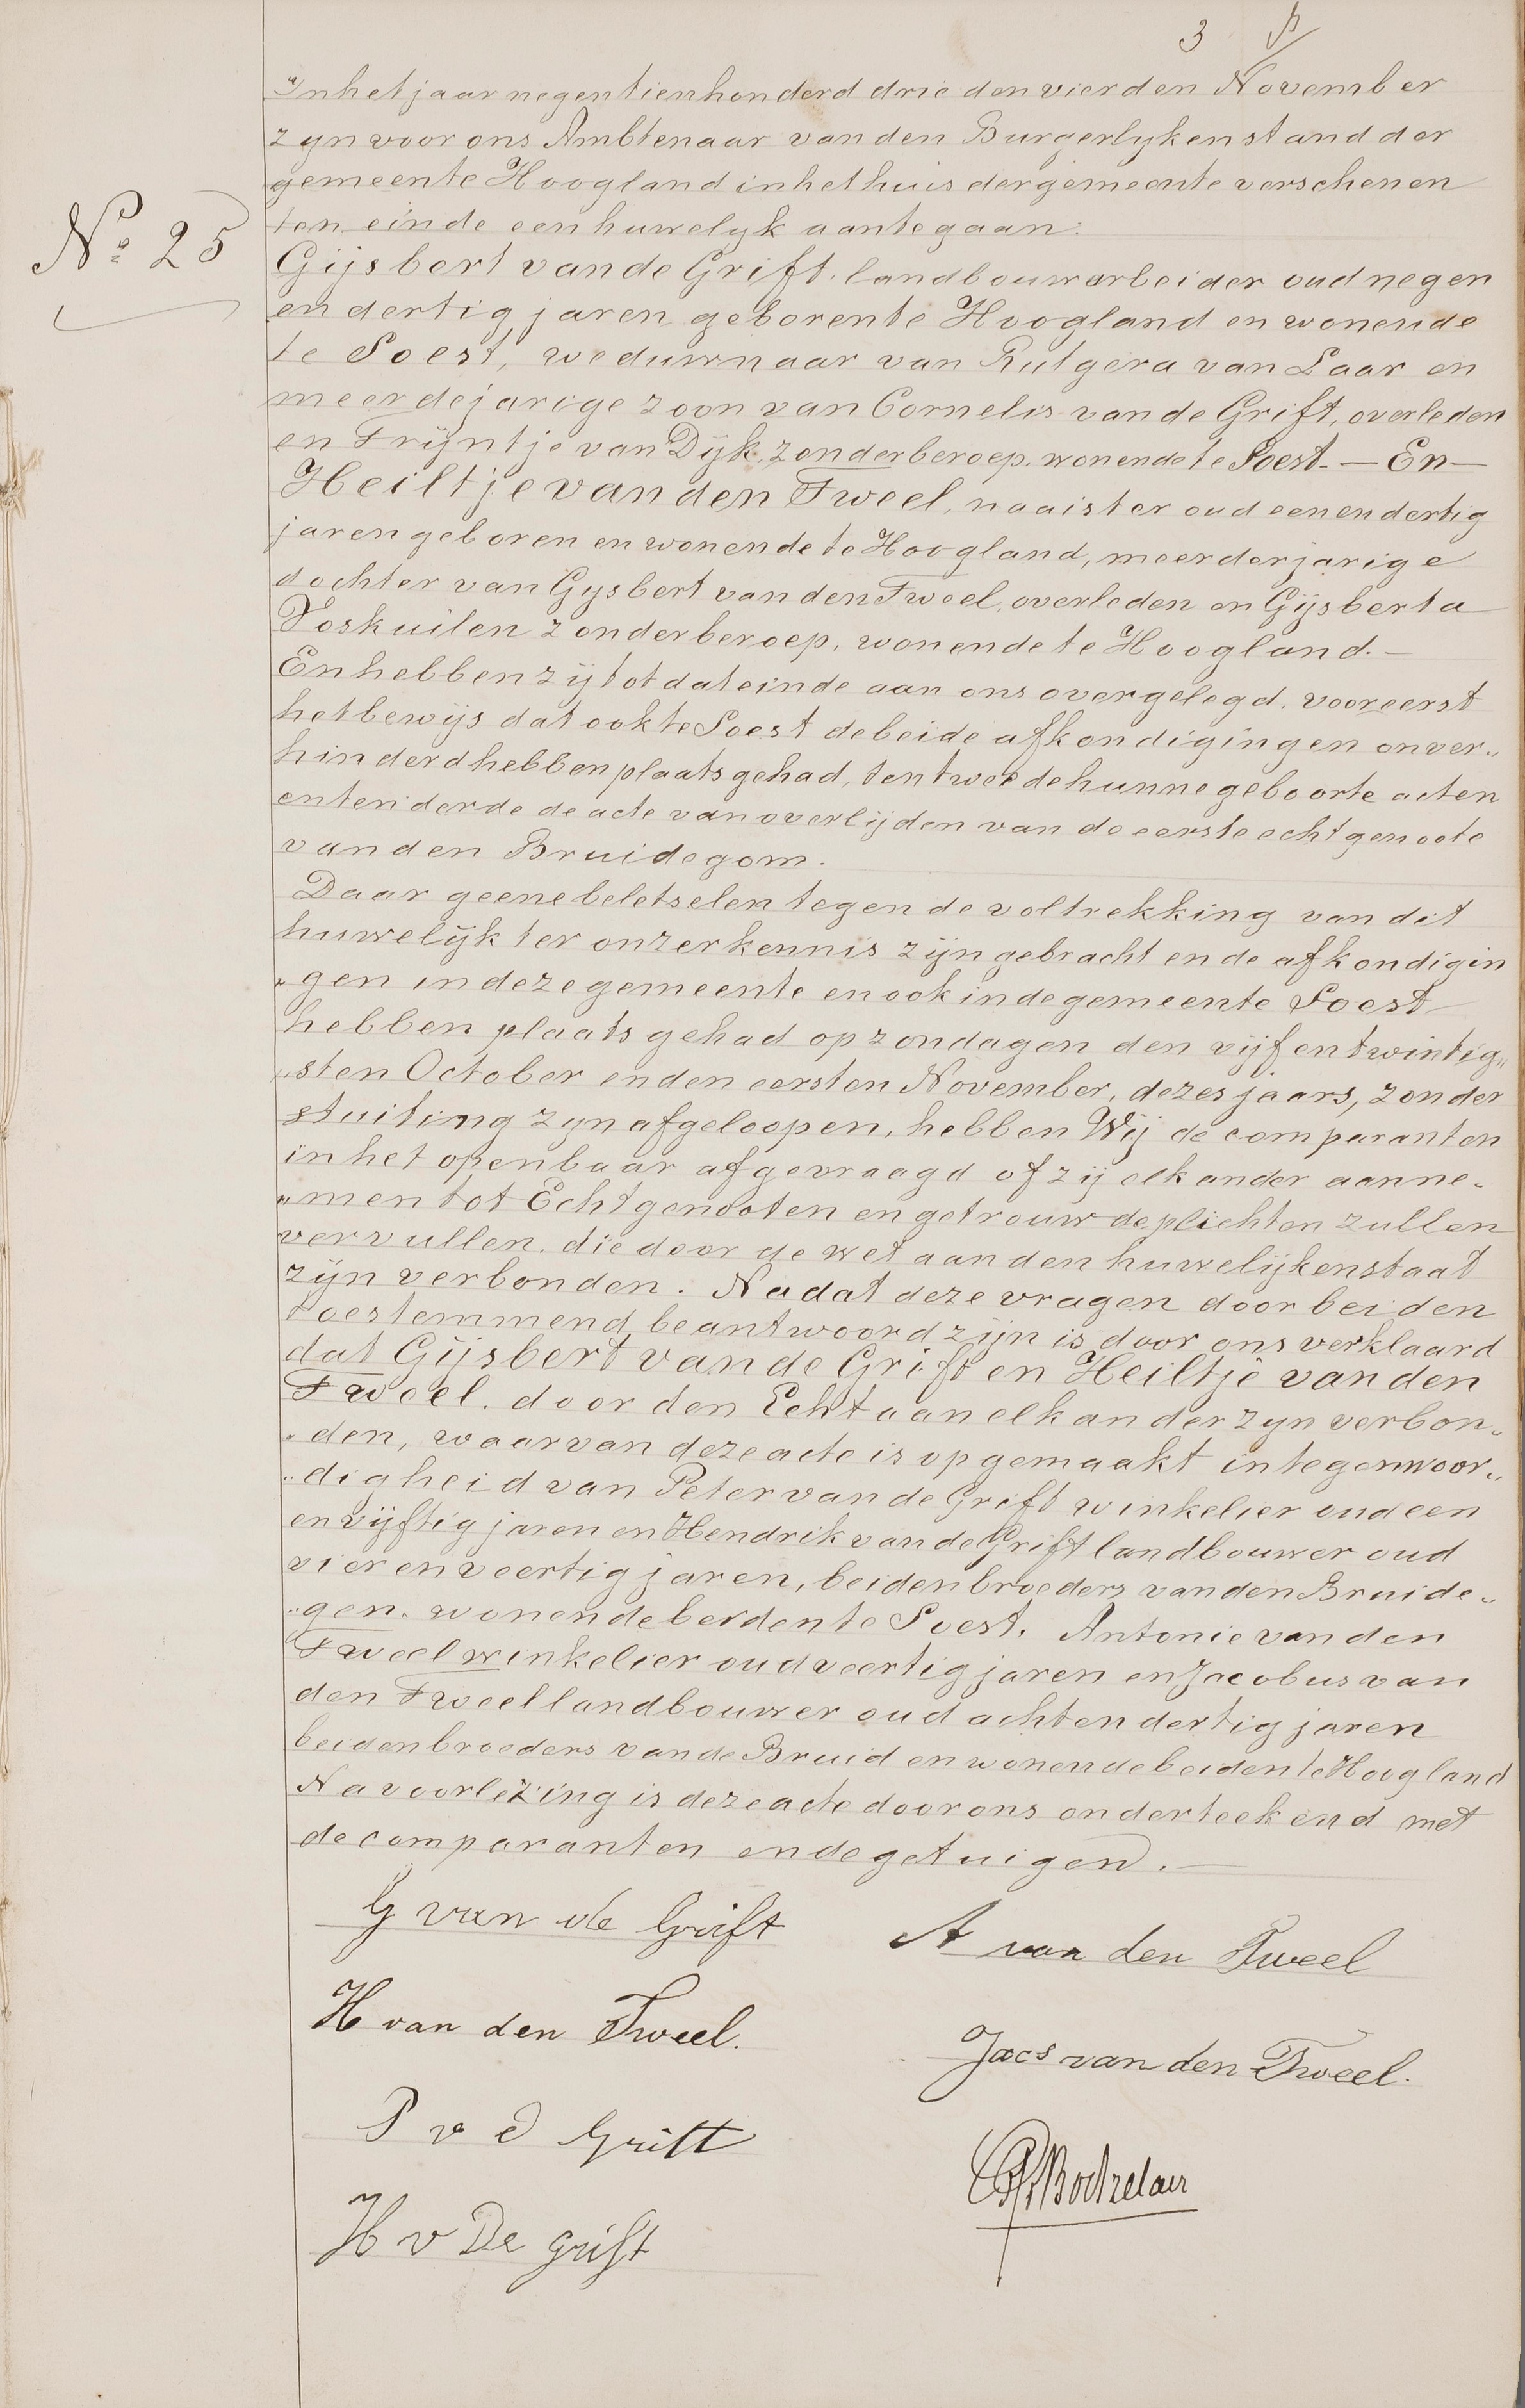 3
In het jaar negentienhonderd drie den vierden November
zyn voor ons Ambtenaar van den Burgerlyken stand der
gemeente Hoogland in het huis der gemeente verschenen
ten einde een huwelyk aantegaan:
No 25
Gijsbert van de Grift, landbouwarbeider oud negen
en dertig jaren geboren te Hoogland en wonende
te Soest, weduwnaar van Rutgera van Laar en
meerdejarige zoon van Cornelis van de Grift, overleden
en Trijntje van Dijk, zonder beroep, wonende te Soest. — En —
Heiltje van den Tweel, naaister oud een en dertig
jaren geboren en wonende te Hoogland, meerderjarige
dochter van Gysbert van den Tweel, overleden en Gijsberta
Voskuilen zonder beroep, wonende te Hoogland. —
En hebben zij tot dat einde aan ons overgelegd, vooreerst
het bewijs dat ook te Soest de beide afkondigingen onver„
hinderd hebben plaats gehad, ten tweede hunne geboorte acten
en ten derde de acte van overlijden van de eerste echtgenoote
van den Bruidegom.
Daar geene beletselen tegen de voltrekking van dit
huwelijk ter onzer kennis zijn gebracht en de afkondigin
„gen in deze gemeente en ook in de gemeente Soest
hebben plaats gehad op zondagen den vijf en twintig„
„sten October en den eersten November, dezes jaars, zonder
stuiting zyn afgeloopen, hebben Wij de comparanten
in het openbaar afgevraagd of zij elkander aanne„
„men tot Echtgenooten en getrouw de plichten zullen
vervullen, die door de wet aan den huwelijken staat
zijn verbonden. Nadat deze vragen door beiden
toestemmend beantwoord zijn is door ons verklaard
dat Gijsbert van de Grift en Heiltje van den
Tweel, door den Echt aan elkander zyn verbon„
„den, waarvan deze acte is opgemaakt in tegenwoor„
„digheid van Peter van de Grift winkelier oud een
en vijftig jaren en Hendrik van de Grift landbouwer oud
vier en veertig jaren, beiden broeders van den Bruide„
„gen. wonende beiden te Soest. Antonie van den
Tweel winkelier oud veertig jaren en Jacobus van
den Tweel landbouwer oud acht en dertig jaren
beiden broeders van de Bruid en wonende beiden te Hoogland
Na voorlezing is deze acte door ons onderteekend met
de comparanten en de getuigen. —
G van de Grift
A van den Tweel
H van den Tweel.
Jacs van den Tweel.
P v d Grift
H v De Grift